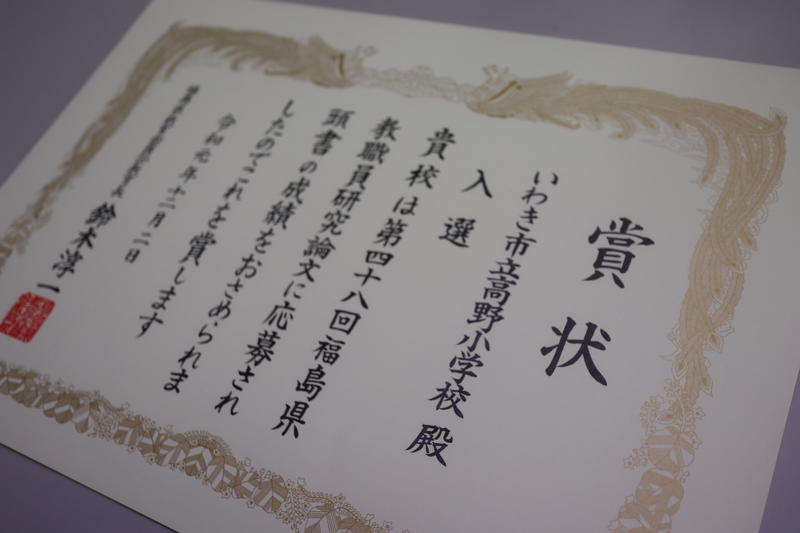 賞状
いわき市立高野小学校 殿
入選
貴校は第四十八回福島県
教職員研究論文に応募され
頭書の成績をおさめられま
したのでこれを賞します
令和元年十二月二日
福島県教育委員会教育長 鈴木淳一